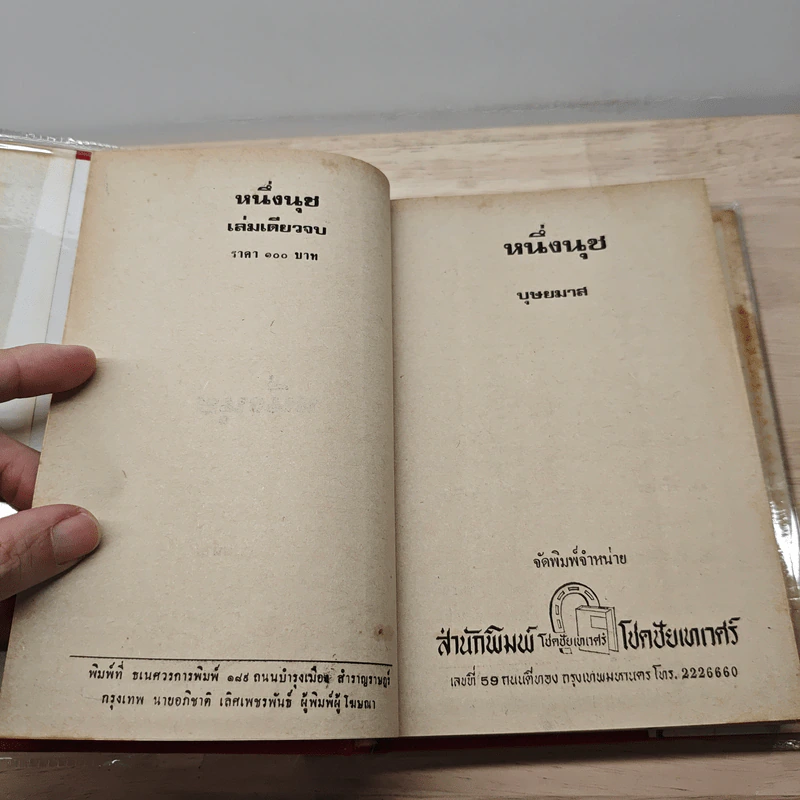 หนึ่งนุช
เล่มเดียวจบ
ราคา ๑๐๐ บาท
พิมพ์ที่ ธเนศวรการพิมพ์ ๑๘๙ ถนนบำรุงเมือง สำราญราษฎร์
กรุงเทพ นายอภิชาติ เลิศเพชรพันธ์ ผู้พิมพ์ผู้โฆษณา
หนึ่งนุช
บุษยมาส
จัดพิมพ์จำหน่าย
สำนักพิมพ์ โชคชัยเทเวศร์ โชคชัยเทเวศร์
เลขที่ 59 ถนนตีทอง กรุงเทพมหานคร โทร. 2226660